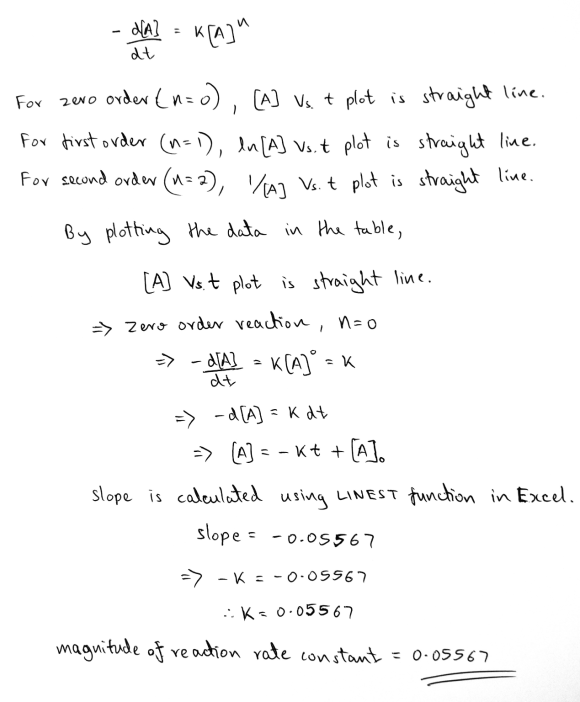 - d[A]/dt = K[A]^n
For zero order (n=0), [A] Vs. t plot is straight line.
For first order (n=1), ln[A] Vs. t plot is straight line.
For second order (n=2), 1/[A] Vs. t plot is straight line.
By plotting the data in the table,
[A] Vs. t plot is straight line.
=> Zero order reaction, n=0
=> - d[A]/dt = K[A]^0 = K
=> -d[A] = K dt
=> [A] = - Kt + [A]₀
Slope is calculated using LINEST function in Excel.
slope = -0.05567
=> - K = -0.05567
∴ K = 0.05567
magnitude of reaction rate constant = 0.05567